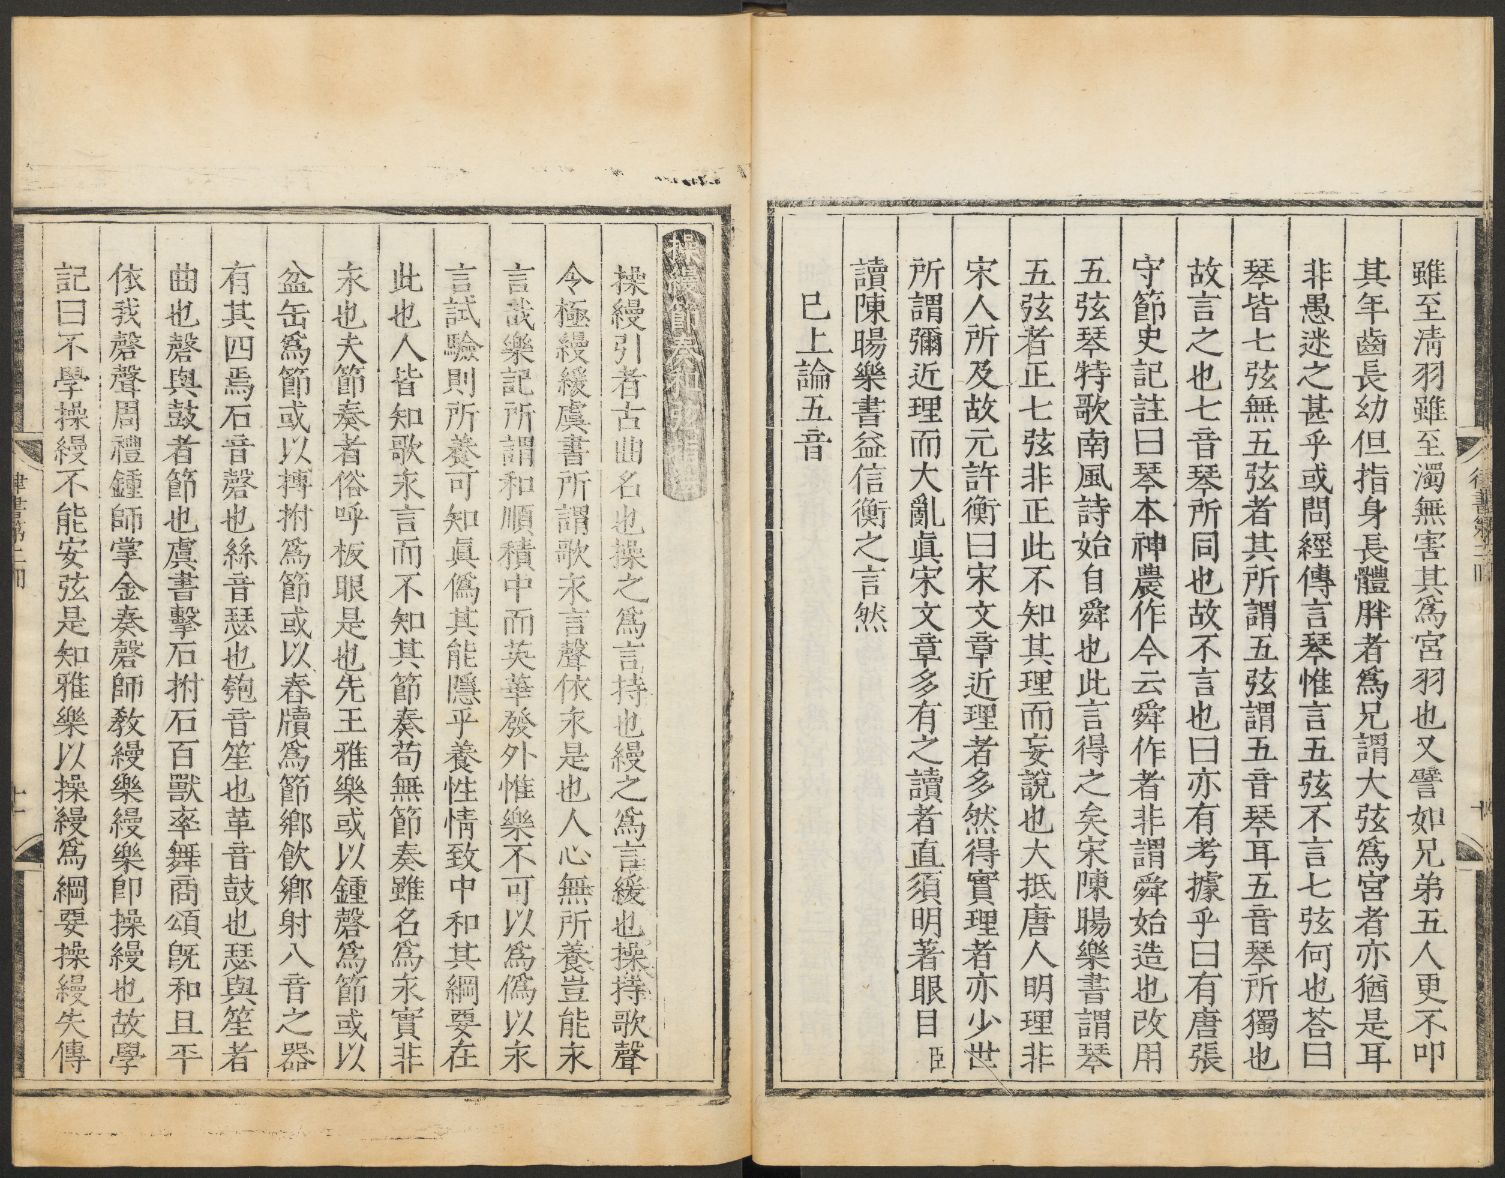 雖至淸羽雖至濁無害其爲宮羽也又譬如兄弟五人更不叩
其年齒長幼但指身長體胖者爲兄謂大弦爲宮者亦猶是耳
非愚迷之甚乎或問經傳言琴惟言五弦不言七弦何也荅曰
琴皆七弦無五弦者其所謂五弦謂五音琴耳五音琴所獨也
故言之也七音琴所同也故不言也曰亦有考據乎曰有唐張
守節史記註曰琴本神農作今云舜作者非謂舜始造也改用
五弦琴特歌南風詩始自舜也此言得之矣宋陳暘樂書謂琴
五弦者正七弦非正此不知其理而妄說也大抵唐人明理非
宋人所及故元許衡曰宋文章近理者多然得實理者亦少世
所謂彌近理而大亂眞宋文章多有之讀者直須明著眼目臣
讀陳暘樂書益信衡之言然
已上論五音
律書第二冊
操縵節奏和
操縵引者古曲名也操之爲言持也縵之爲言緩也操持歌聲
令極縵緩虞書所謂歌永言聲依永是也人心無所養豈能永
言哉樂記所謂和順積中而英華發外惟樂不可以爲僞以永
言試驗則所養可知眞僞其能隱乎養性情致中和其綱要在
此也人皆知歌永言而不知其節奏苟無節奏雖名爲永實非
永也夫節奏者俗呼板眼是也先王雅樂或以鍾磬爲節或以
盆缶爲節或以摶拊爲節或以舂牘爲節鄉飲鄉射八音之器
有其四焉石音磬也絲音瑟也匏音笙也革音鼓也瑟與笙者
曲也磬與鼓者節也虞書擊石拊石百獸率舞商頌旣和且平
依我磬聲周禮鍾師掌金奏磬師敎縵樂縵樂卽操縵也故學
記曰不學操縵不能安弦是知雅樂以操縵爲綱要操縵失傳
律書第二冊